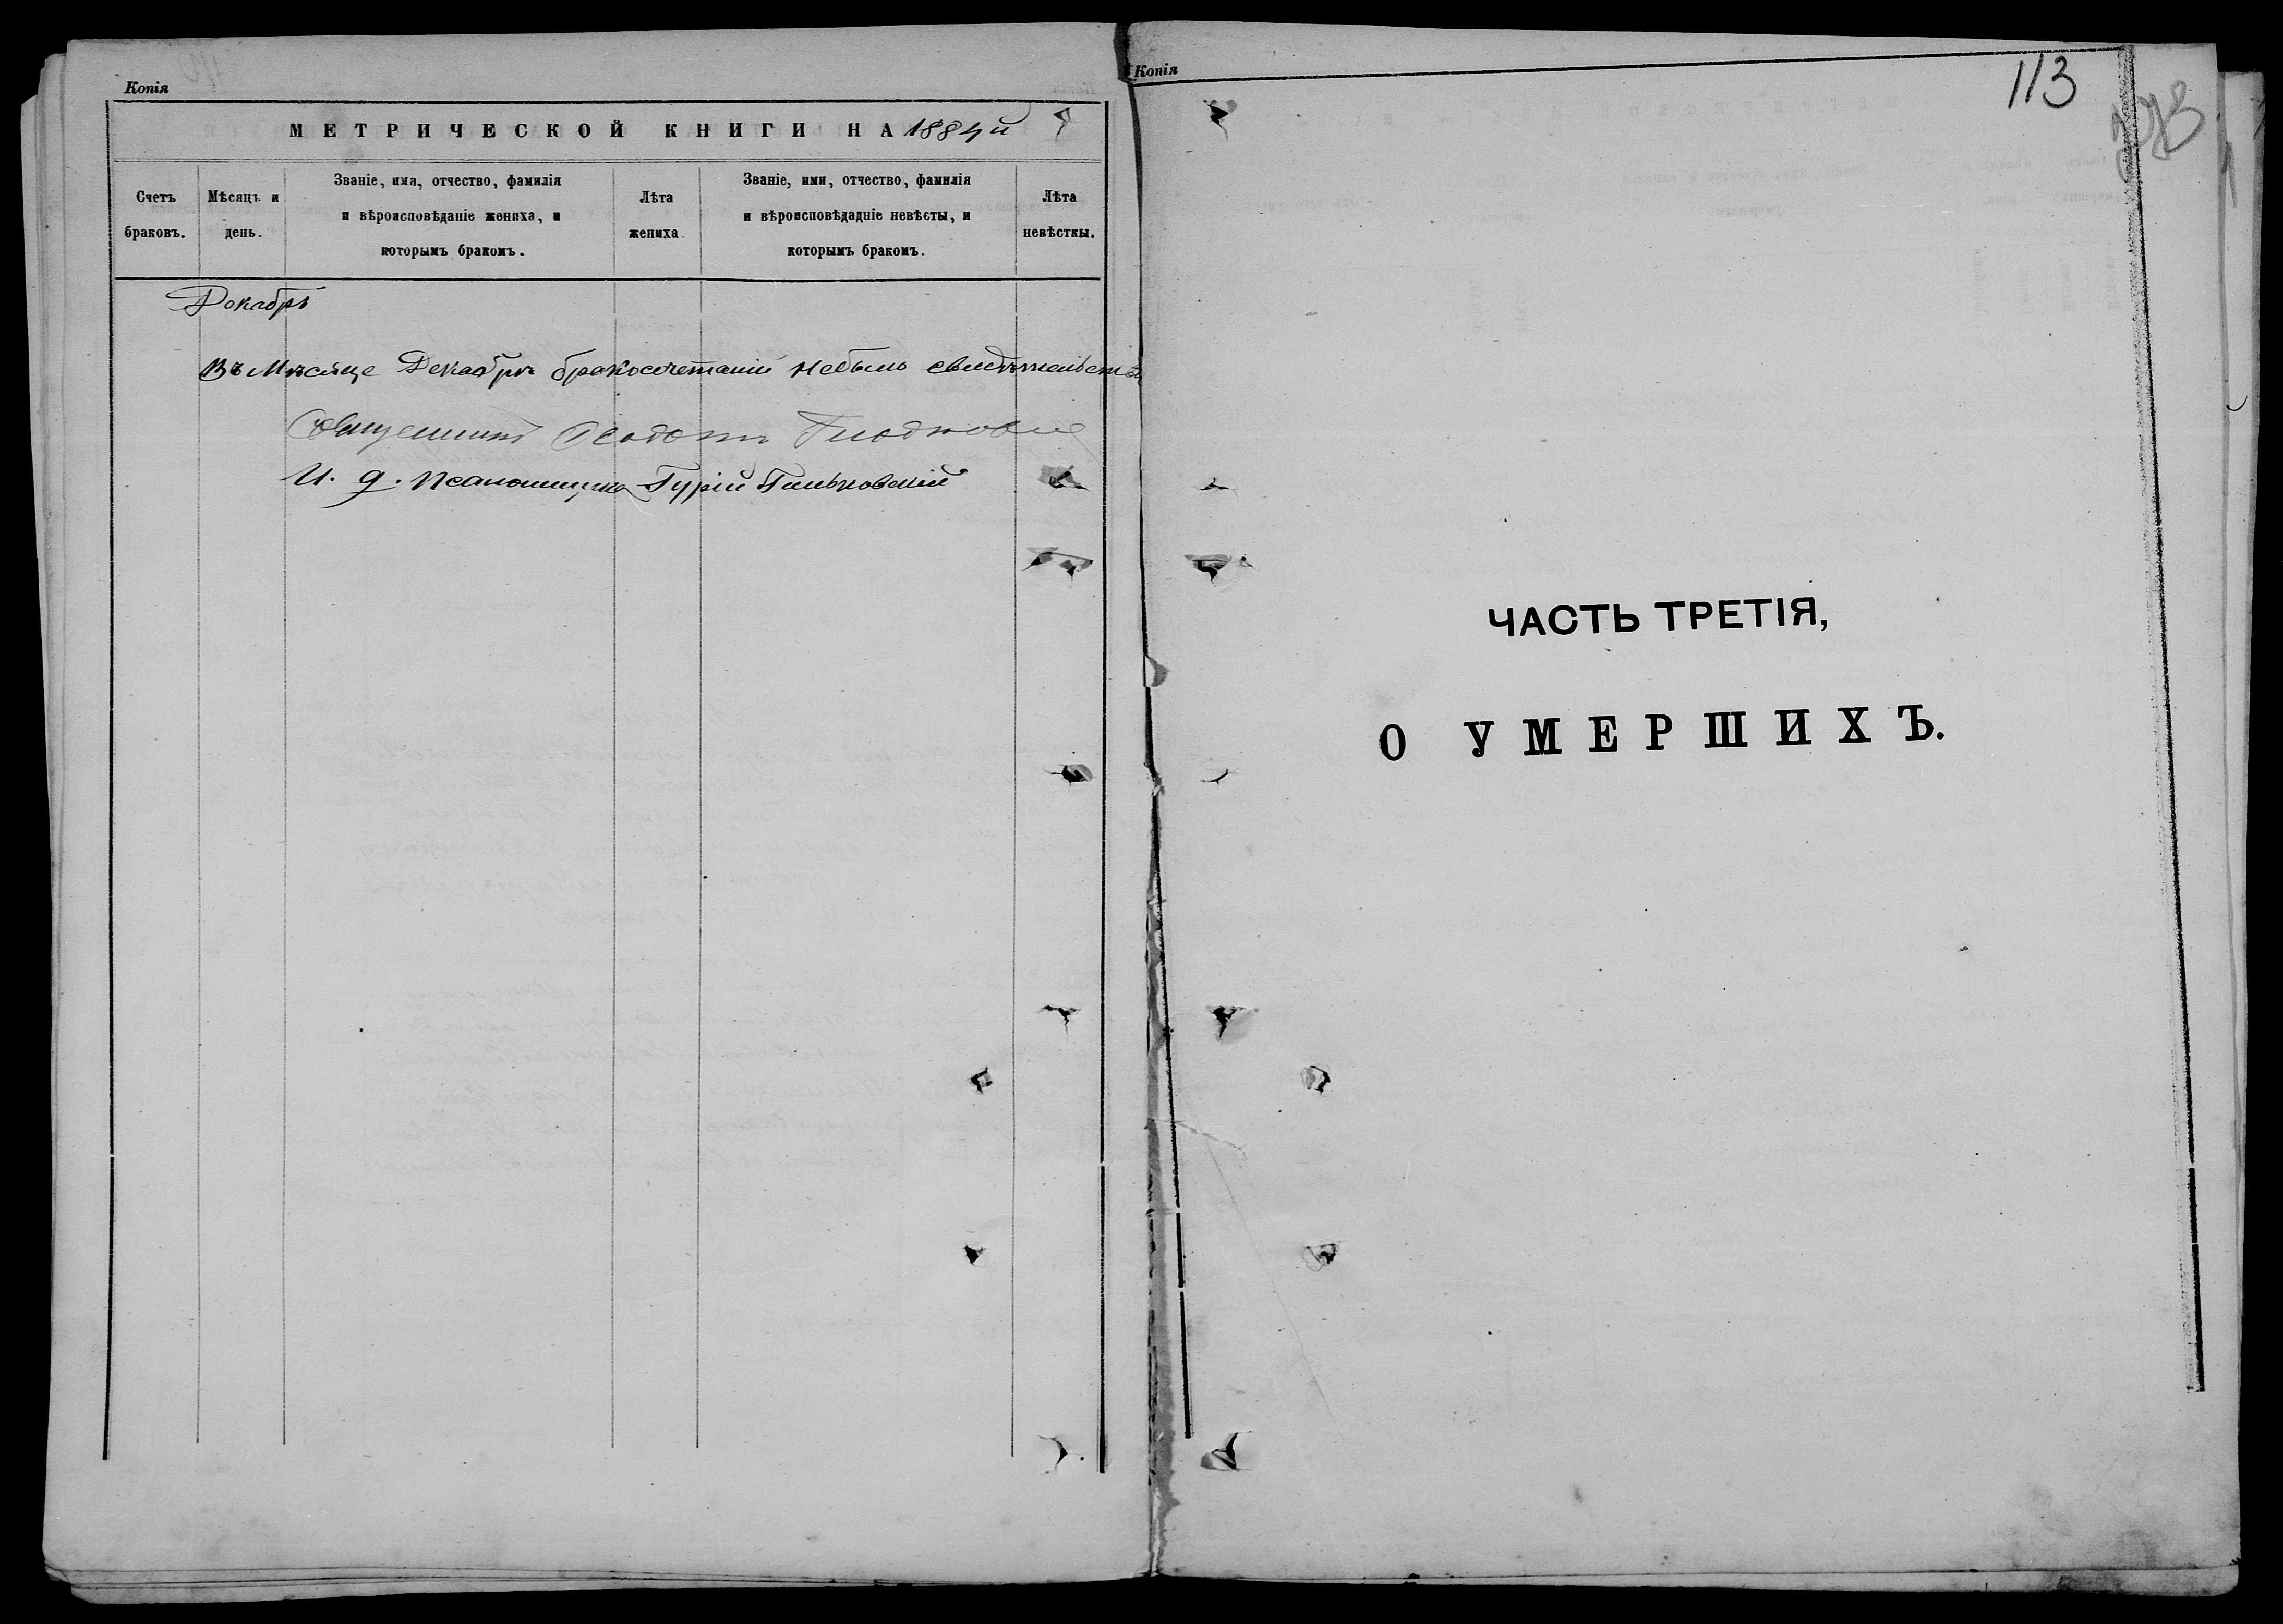 Копія
МЕТРИЧЕСКОЙ КНИГИ НА 1884й
Счетъ браковъ.
Мѣсяцъ и день.
Званіе, имя, отчество, фамилія и вѣроисповѣданіе жениха, и которымъ бракомъ.
Лѣта жениха.
Званіе, ими, отчество, фамилія и вѣроисповѣдадніе невѣсты, и которымъ бракомъ.
Лѣта невѣсткы.
Декабрь
Въ Мѣсяце Декабрѣ бракосочетаній небыло
Священникъ
И. д. Псаломщика Гурій
Копія
113
ЧАСТЬ ТРЕТІЯ,
О УМЕРШИХЪ.